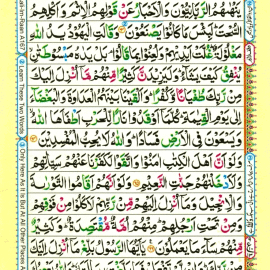 يَنْهٰىهُمُ الرَّبّٰنِيُّوْنَ وَالْاَحْبَارُ عَنْ قَوْلِهِمُ الْاِثْمَ وَاَكْلِهِمُ
السُّحْتَ لَبِئْسَ مَا كَانُوْا يَصْنَعُوْنَ وَقَالَتِ الْيَهُوْدُ يَدُ اللّٰهِ
مَغْلُوْلَةٌ غُلَّتْ اَيْدِيْهِمْ وَلُعِنُوْا بِمَا قَالُوْا بَلْ يَدٰهُ مَبْسُوْطَتٰنِ
يُنْفِقُ كَيْفَ يَشَآءُ وَلَيَزِيْدَنَّ كَثِيْرًا مِّنْهُمْ مَّاۤ اُنْزِلَ اِلَيْكَ
مِنْ رَّبِّكَ طُغْيَانًا وَّكُفْرًا وَاَلْقَيْنَا بَيْنَهُمُ الْعَدَاوَةَ وَالْبَغْضَآءَ
اِلٰى يَوْمِ الْقِيٰمَةِ كُلَّمَاۤ اَوْقَدُوْا نَارًا لِّلْحَرْبِ اَطْفَاَهَا اللّٰهُ
وَيَسْعَوْنَ فِى الْاَرْضِ فَسَادًا وَاللّٰهُ لَا يُحِبُّ الْمُفْسِدِيْنَ
وَلَوْ اَنَّ اَهْلَ الْكِتٰبِ اٰمَنُوْا وَاتَّقَوْا لَكَفَّرْنَا عَنْهُمْ سَيِّاٰتِهِمْ
وَلَاَدْخَلْنٰهُمْ جَنّٰتِ النَّعِيْمِ وَلَوْ اَنَّهُمْ اَقَامُوا التَّوْرٰىةَ
وَالْاِنْجِيْلَ وَمَاۤ اُنْزِلَ اِلَيْهِمْ مِّنْ رَّبِّهِمْ لَاَكَلُوْا مِنْ فَوْقِهِمْ
وَمِنْ تَحْتِ اَرْجُلِهِمْ مِنْهُمْ اُمَّةٌ مُّقْتَصِدَةٌ وَكَثِيْرٌ
مِّنْهُمْ سَآءَ مَا يَعْمَلُوْنَ يٰۤاَيُّهَا الرَّسُوْلُ بَلِّغْ مَاۤ اُنْزِلَ اِلَيْكَ
Learn These Two Words
Only Here As It Is But At All Other Places A